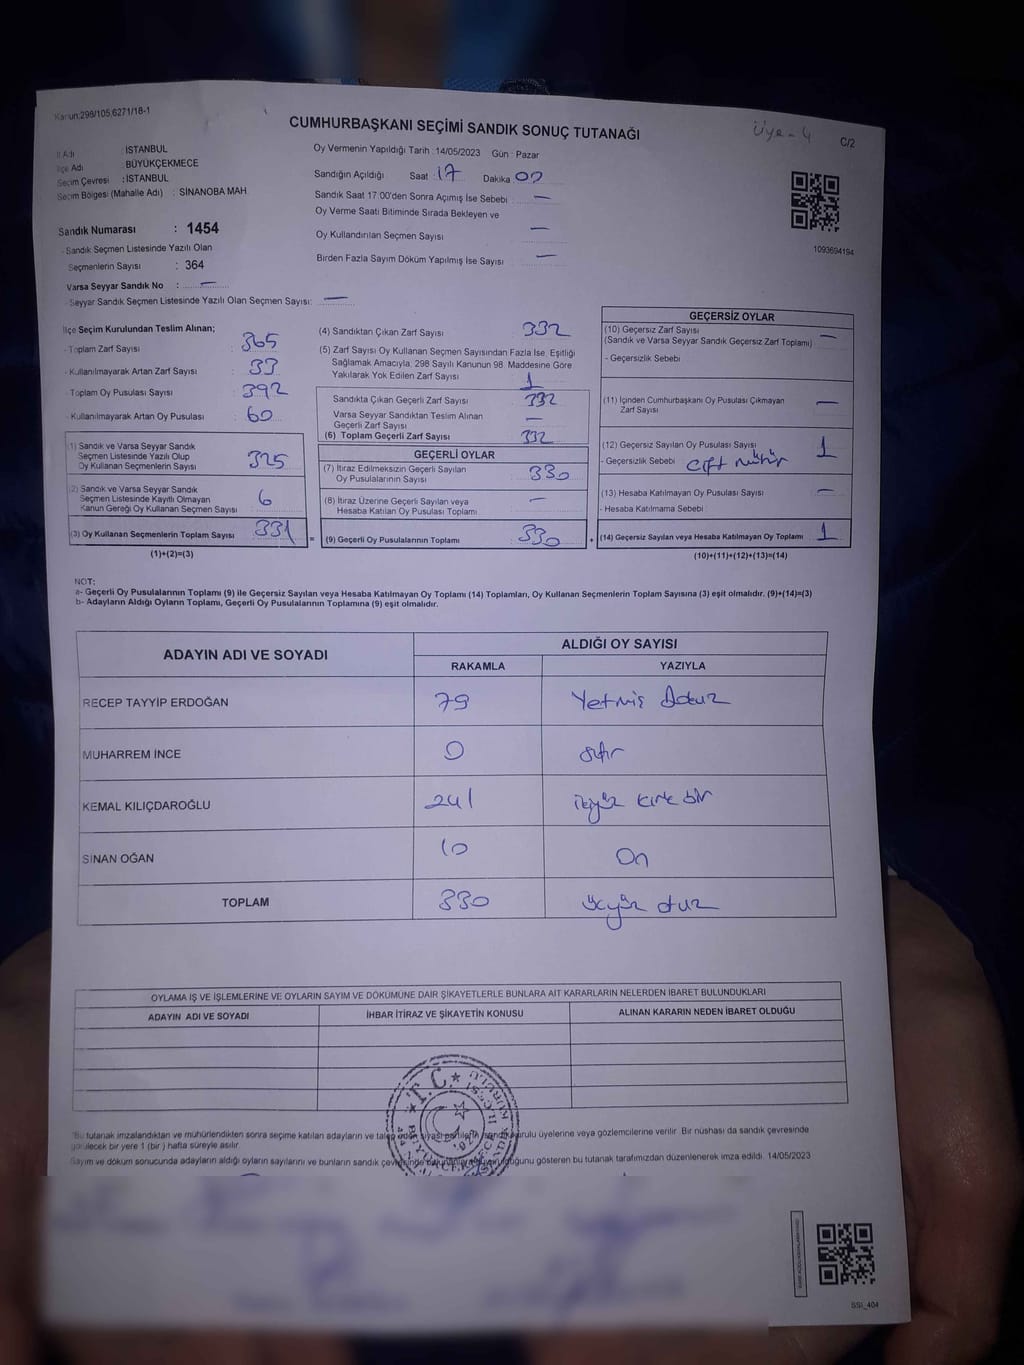 Kanun:298/105,6271/18-1
CUMHURBAŞKANI SEÇİMİ SANDIK SONUÇ TUTANAĞI
Üye-4
C/2
İl Adı : İSTANBUL
İlçe Adı : BÜYÜKÇEKMECE
Seçim Çevresi : İSTANBUL
Seçim Bölgesi (Mahalle Adı) : SİNANOBA MAH.
Oy Vermenin Yapıldığı Tarih : 14/05/2023 Gün : Pazar
Sandığın Açıldığı Saat : 17 Dakika : 00
Sandık Saat 17.00'den Sonra Açımış İse Sebebi : —
Oy Verme Saati Bitiminde Sırada Bekleyen ve
Oy Kullandırılan Seçmen Sayısı —
Birden Fazla Sayım Döküm Yapılmış İse Sayısı : —
1093694194
Sandık Numarası : 1454
- Sandık Seçmen Listesinde Yazılı Olan
Seçmenlerin Sayısı : 364
Varsa Seyyar Sandık No : —
- Seyyar Sandık Seçmen Listesinde Yazılı Olan Seçmen Sayısı: —
İlçe Seçim Kurulundan Teslim Alınan;
- Toplam Zarf Sayısı : 365
- Kullanılmayarak Artan Zarf Sayısı : 33
- Toplam Oy Pusulası Sayısı : 392
- Kullanılmayarak Artan Oy Pusulası : 60
(1) Sandık ve Varsa Seyyar Sandık
Seçmen Listesinde Yazılı Olup
Oy Kullanan Seçmenlerin Sayısı : 325
(2) Sandık ve Varsa Seyyar Sandık
Seçmen Listesinde Kayıtlı Olmayan
Kanun Gereği Oy Kullanan Seçmen Sayısı : 6
(3) Oy Kullanan Seçmenlerin Toplam Sayısı : 331
(1)+(2)=(3)
(4) Sandıktan Çıkan Zarf Sayısı : 332
(5) Zarf Sayısı Oy Kullanan Seçmen Sayısından Fazla İse, Eşitliği
Sağlamak Amacıyla, 298 Sayılı Kanunun 98. Maddesine Göre
Yakılarak Yok Edilen Zarf Sayısı : 1
Sandıkta Çıkan Geçerli Zarf Sayısı : 332
Varsa Seyyar Sandıktan Teslim Alınan
Geçerli Zarf Sayısı : —
(6) Toplam Geçerli Zarf Sayısı : 332
GEÇERLİ OYLAR
(7) İtiraz Edilmeksizin Geçerli Sayılan
Oy Pusulalarının Sayısı : 330
(8) İtiraz Üzerine Geçerli Sayılan veya
Hesaba Katılan Oy Pusulası Toplamı : —
= (9) Geçerli Oy Pusulalarının Toplamı : 330
GEÇERSİZ OYLAR
(10) Geçersiz Zarf Sayısı
(Sandık ve Varsa Seyyar Sandık Geçersiz Zarf Toplamı) : —
- Geçersizlik Sebebi :
(11) İçinden Cumhurbaşkanı Oy Pusulası Çıkmayan
Zarf Sayısı : —
(12) Geçersiz Sayılan Oy Pusulası Sayısı : 1
- Geçersizlik Sebebi : Çift mühür
(13) Hesaba Katılmayan Oy Pusulası Sayısı : —
- Hesaba Katılmama Sebebi :
+ (14) Geçersiz Sayılan veya Hesaba Katılmayan Oy Toplamı : 1
(10)+(11)+(12)+(13)=(14)
NOT:
a- Geçerli Oy Pusulalarının Toplamı (9) ile Geçersiz Sayılan veya Hesaba Katılmayan Oy Toplamı (14) Toplamları, Oy Kullanan Seçmenlerin Toplam Sayısına (3) eşit olmalıdır. (9)+(14)=(3)
b- Adayların Aldığı Oyların Toplamı, Geçerli Oy Pusulalarının Toplamına (9) eşit olmalıdır.
ADAYIN ADI VE SOYADI
ALDIĞI OY SAYISI
RAKAMLA YAZIYLA
RECEP TAYYİP ERDOĞAN 79 Yetmiş Dokuz
MUHARREM İNCE 0 sıfır
KEMAL KILIÇDAROĞLU 241 ikiyüz kırk bir
SİNAN OĞAN 10 On
TOPLAM 330 üçyüz otuz
OYLAMA İŞ VE İŞLEMLERİNE VE OYLARIN SAYIM VE DÖKÜMÜNE DAİR ŞİKAYETLERLE BUNLARA AİT KARARLARIN NELERDEN İBARET BULUNDUKLARI
ADAYIN ADI VE SOYADI İHBAR İTİRAZ VE ŞİKAYETİN KONUSU ALINAN KARARIN NEDEN İBARET OLDUĞU
T.C.
Bu tutanak imzalandıktan ve mühürlendikten sonra seçime katılan adayların ve talep eden siyasi partilerin sandık kurulu üyelerine veya gözlemcilerine verilir. Bir nüshası da sandık çevresinde
görülecek bir yere 1 (bir) hafta süreyle asılır.
Sayım ve döküm sonucunda adayların aldığı oyların sayılarını ve bunların sandık çevresinde gösteren bu tutanak tarafımızdan düzenlenerek imza edildi. 14/05/2023
SSİ_404